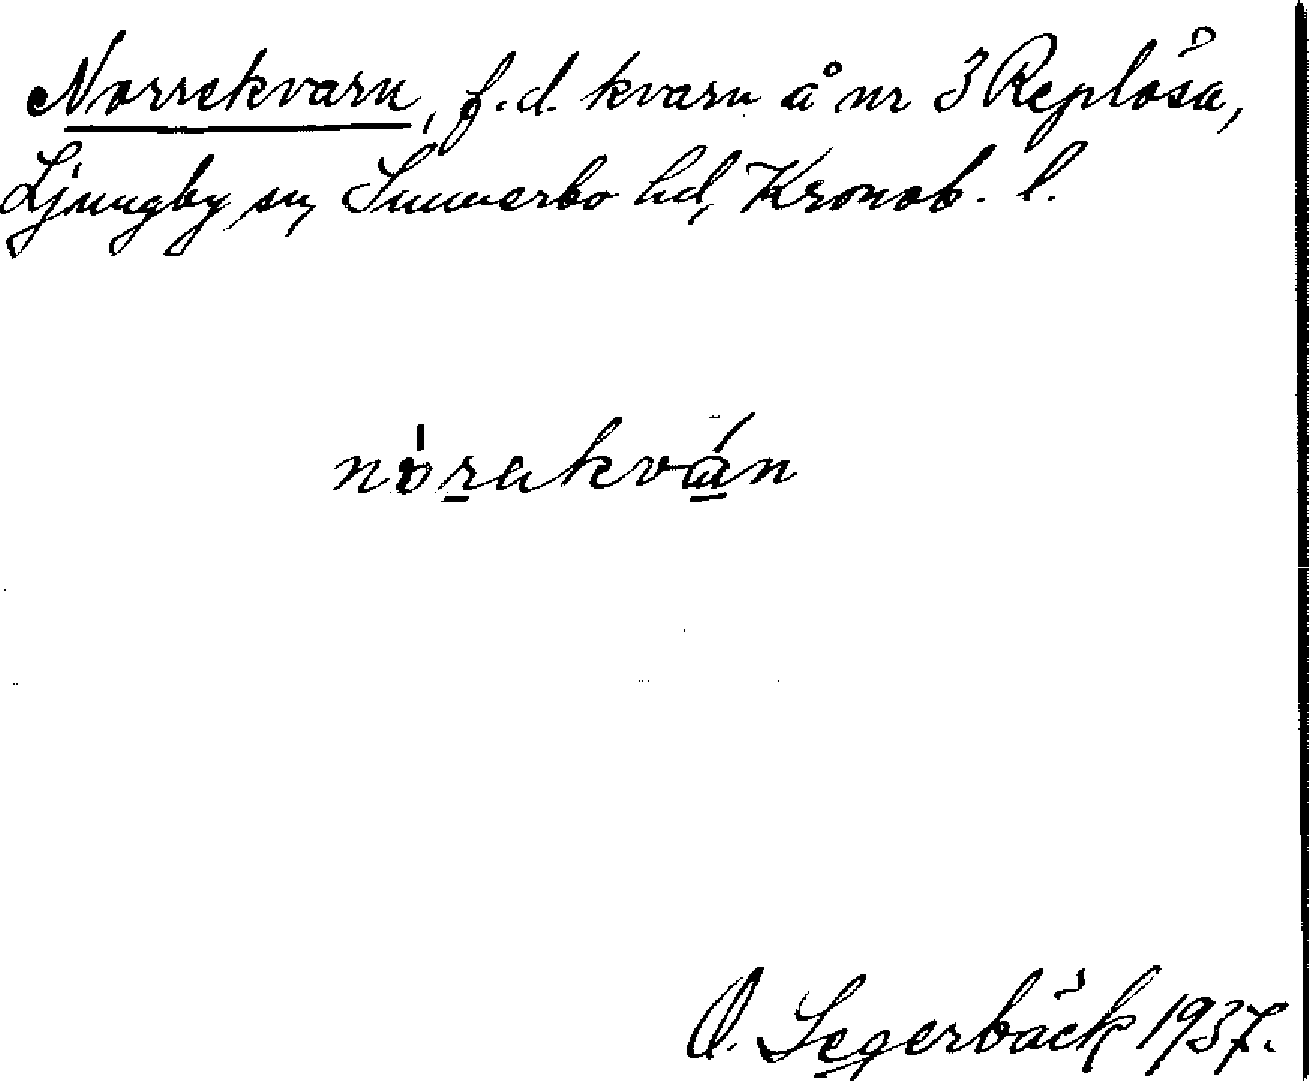 Norrekvarn, f.d. kvarn å nr 3 Replösa,
Ljungby sn, Sunnerbo hd, Kronob. l.
nórakván
O. Segerbäck 1937.